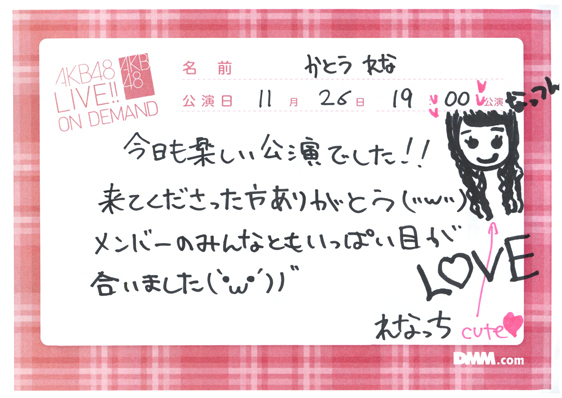 AKB48
LIVE!!
ON DEMAND
AKB
48
名前 かとう れな
公演日 11月 26日 19:00公演
なっつん
今日も楽しい公演でした!!
来てくださった方ありがとう(¨w¨)
メンバーのみんなともいっぱい目が
合いました(`•ω•´)ノ゛
LOVE
れなっち cute
DMM.com